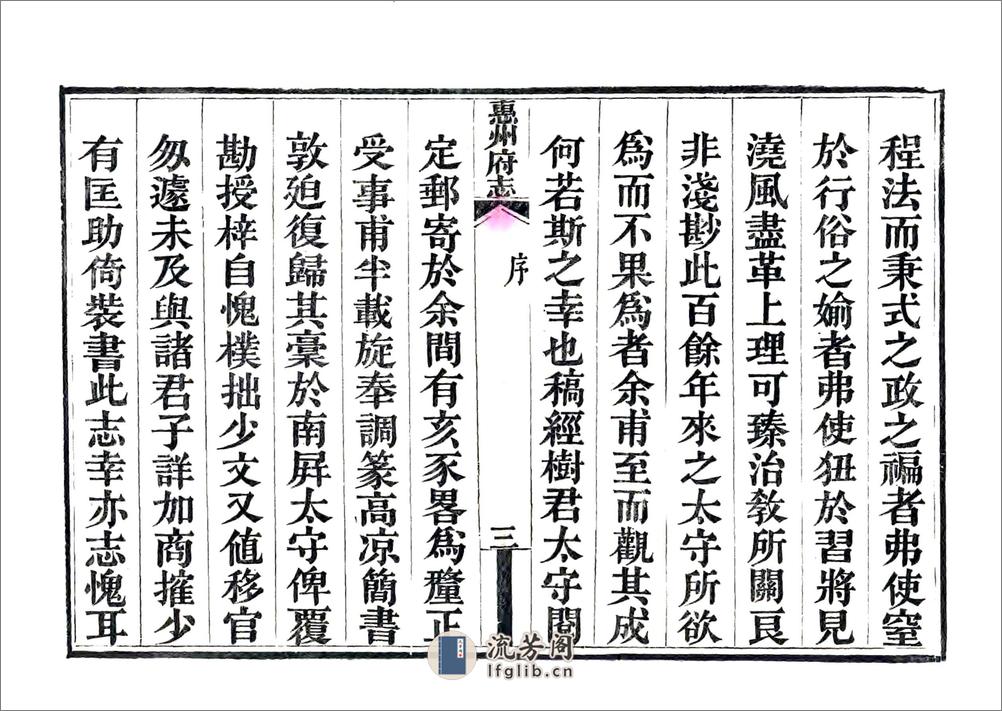 程法而秉式之政之褊者弗使窒
於行俗之媮者弗使狃於習將見
澆風盡革上理可臻治敎所關良
非淺尠此百餘年來之太守所欲
爲而不果爲者余甫至而觀其成
何若斯之幸也稿經樹君太守閱
惠州府志
序
三
定郵寄於余間有亥豕畧爲釐正
受事甫半載旋奉調篆高凉簡書
敦廹復歸其稾於南屛太守俾覆
勘授梓自愧樸拙少文又值移官
匆遽未及與諸君子詳加商搉少
有匡助倚裝書此志幸亦志愧耳
流芳阁
lfglib.cn